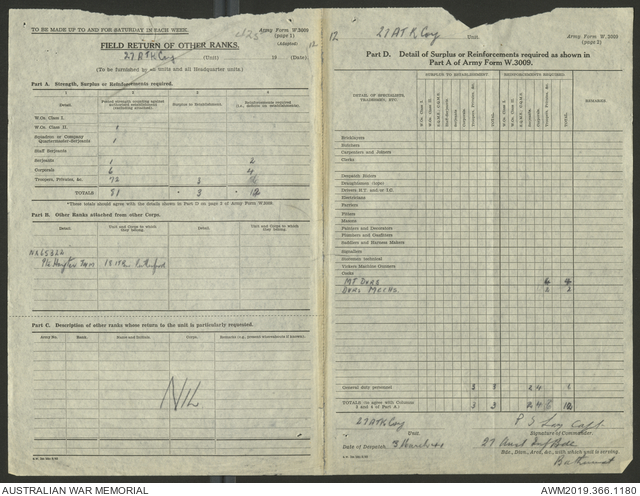 TO BE MADE UP TO AND FOR SATURDAY IN EACH WEEK.
Army Form W.3009
(page 1)
(Adapted)
12
FIELD RETURN OF OTHER RANKS.
27 ATK Coy (Unit) 19 (Date)
(To be furnished by all units and all Headquarter units.)
Part A. Strength, Surplus or Reinforcements required.
1 2 3 4
Detail. Surplus to Establishment. Reinforcements required
W.Os. Class I.
W.Os. Class II. 1
Squadron or Company Quartermaster-Serjeants 1
Staff Serjeants
Serjeants 1 2
Corporals 6 4
Troopers, Privates, &c. 72 3
TOTALS 81 * 3 * 12
*These totals should agree with the details shown in Part D on page 2 of Army Form W.3009.
Part B. Other Ranks attached from other Corps.
Detail. Unit and Corps to which they belong. Detail. Unit and Corps to which they belong.
NX65822
Part C. Description of other ranks whose return to the unit is particularly requested.
Army No. Rank. Name and Initials. Corps. Remarks (e.g., present whereabouts if known).
NIL
12
27 ATK Coy Unit.
Army Form W. 3009
(page 2)
Part D. Detail of Surplus or Reinforcements required as shown in
Part A of Army Form W.3009.
DETAIL OF SPECIALISTS, TRADESMEN, ETC.
SURPLUS TO ESTABLISHMENT REINFORCEMENTS REQUIRED
REMARKS
Bricklayers
Butchers
Carpenters and Joiners
Clerks
Despatch Riders
Draughtsmen
Drivers H.T. and/or I.C.
Electricians
Farriers
Fitters
Masons
Painters and Decorators
Plumbers and Gasfitters
Saddlers and Harness Makers
Signallers
Storemen technical
Vickers Machine Gunners
Cooks
MT Dvrs 6
Dvrs Mechs 2 2
General duty personnel 3 3 2 4
TOTALS (to agree with Columns 3 and 4 of Part A) 3 3 2 4 12
27 ATK Coy
Unit
Signature of Commander.
Date of Despatch 3 March 41
27 Aust Inf Bde
Bde., Divn., Area, &c., with which unit is serving.
Bathurst
AUSTRALIAN WAR MEMORIAL
AWM2019.366.1180